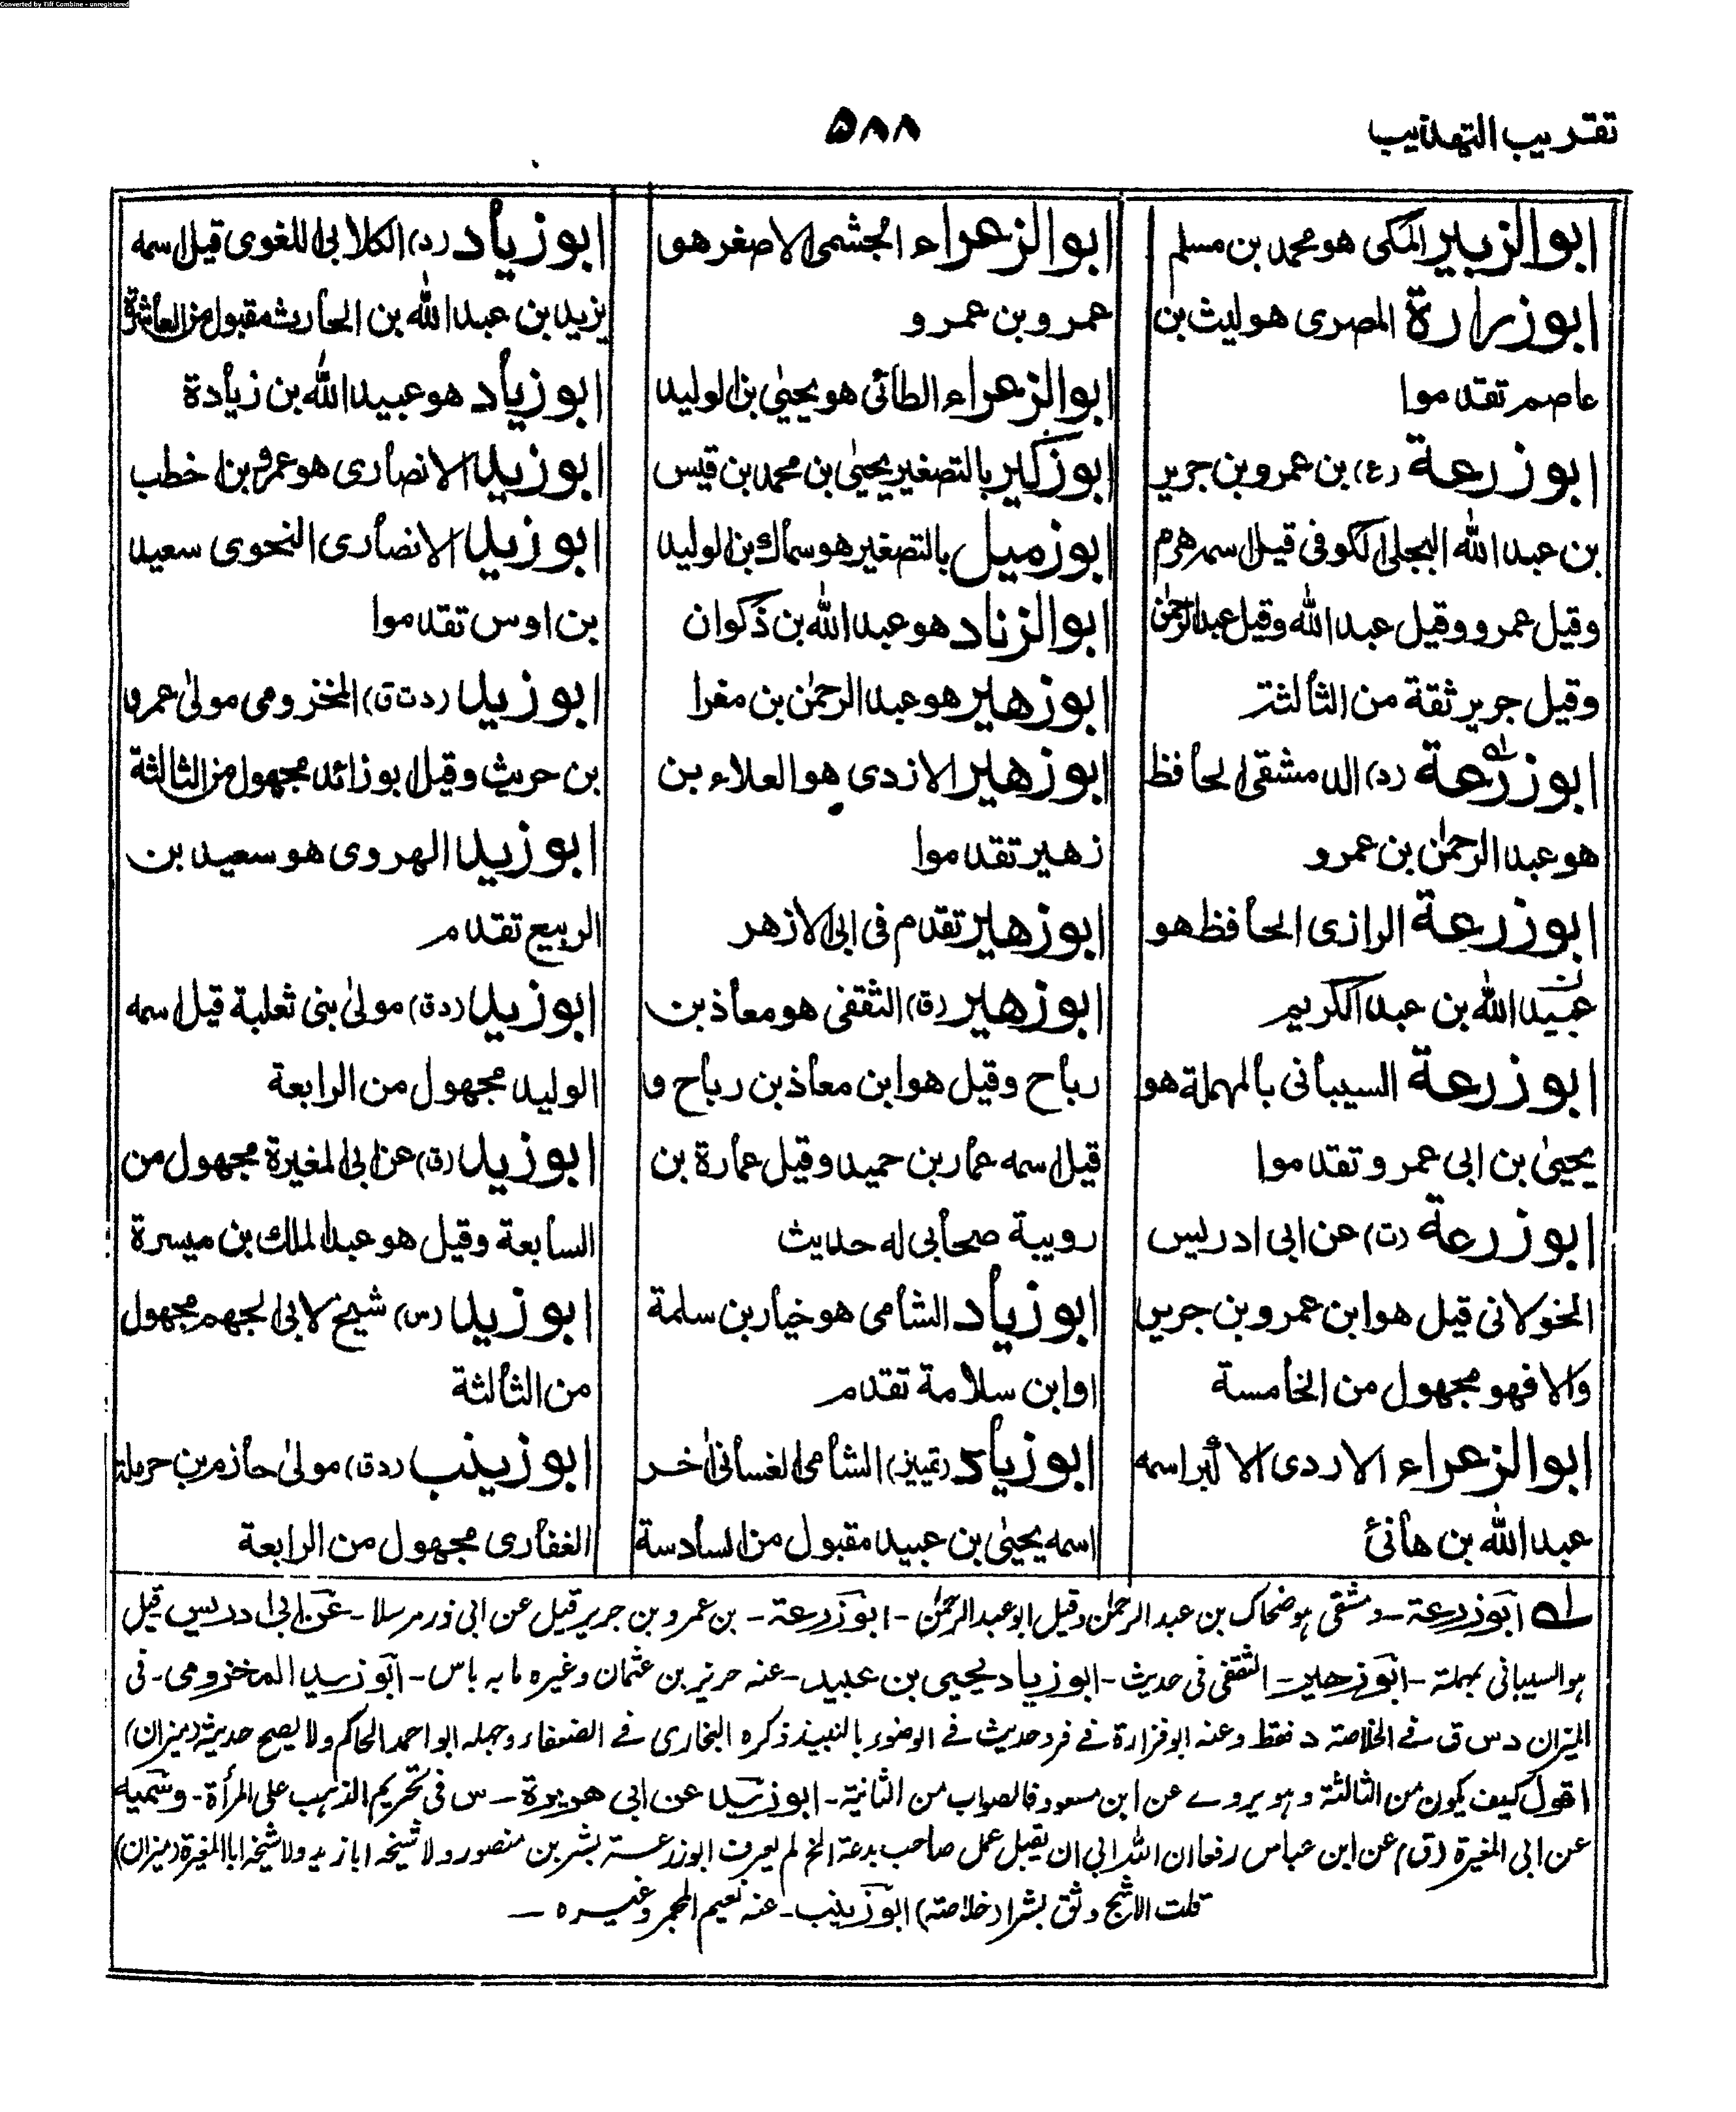 Converted by Tiff Combine - unregistered
تقريب التهذيب
۵۸۸
ابوالزبير المكى هو محمد بن مسلم
ابوزرارة المصرى هو ليث بن
عاصم تقدموا
ابوزرعة (ع) بن عمرو بن جرير
بن عبد الله البجلى الكوفى قيل اسمه هرم
وقيل عمرو وقيل عبد الله وقيل عبد الرحمٰن
وقيل جرير ثقة من الثالثة
ابوزرعة (د) الدمشقى الحافظ
هو عبد الرحمٰن بن عمرو
ابوزرعة الرازى الحافظ هو
عبيد الله بن عبد الكريم
ابوزرعة السيبانى بالمهملة هو
يحيىٰ بن ابى عمرو تقدموا
ابوزرعة (ت) عن ابى ادريس
الخولانى قيل هو ابن عمرو بن جرير
والا فهو مجهول من الخامسة
ابوالزعراء الازدى الاكبر اسمه
عبد الله بن هانئ
ابوالزعراء الجشمى الاصغر هو
عمرو بن عمرو
ابوالزعراء الطائى هو يحيىٰ بن الوليد
ابوزكير بالتصغير يحيىٰ بن محمد بن قيس
ابوزميل بالتصغير هو سماك بن الوليد
ابوالزناد هو عبد الله بن ذكوان
ابوزهير هو عبد الرحمٰن بن مغرا
ابوزهير الازدى هو العلاء بن
زهير تقدموا
ابوزهير تقدم فى ابى الازهر
ابوزهير (ق) الثقفى هو معاذ بن
رباح وقيل هو ابن معاذ بن رباح و
قيل اسمه عمار بن حميد وقيل عمارة بن
رويبة صحابى له حديث
ابوزياد الشامى هو خيار بن سلمة
او ابن سلامة تقدم
ابوزياد (تمييز) الشامى الغسانى اٰخر
اسمه يحيىٰ بن عبيد مقبول من السادسة
ابوزياد (د) الكلابى اللغوى قيل اسمه
يزيد بن عبد الله بن الحارث مقبول من العاشرة
ابوزياد هو عبيد الله بن زيادة
ابوزيد الانصارى هو عمرو بن اخطب
ابوزيد الانصارى النحوى سعيد
بن اوس تقدموا
ابوزيد (د ت ق) المخزومى مولىٰ عمرو
بن حريث وقيل ابوزائد مجهول من الثالثة
ابوزيد الهروى هو سعيد بن
الربيع تقدم
ابوزيد (د ق) مولىٰ بنى ثعلبة قيل اسمه
الوليد مجهول من الرابعة
ابوزيد (ق) عن ابى المغيرة مجهول من
السابعة وقيل هو عبد الملك بن ميسرة
ابوزيد (س) شيخ لابى الجهم مجهول
من الثالثة
ابوزينب (د ق) مولىٰ حازم بن حرملة
الغفارى مجهول من الرابعة
لـه ابوزرعة - دمشقى ہو ضحاك بن عبد الرحمٰن وقيل ابو عبد الرحمٰن - ابوزرعة - بن عمرو بن جرير قيل عن ابى ذر مرسلا - عن ابى ادريس قيل
ہو السيبانى بمہملة - ابوزهير - الثقفى فى حديث - ابوزياد يحيى بن عبيد - عنه حريز بن عثمان وغيره ما به باس - ابوزيد المخزومى - فى
الميزان د س ق فے الخلاصة د فقط وعنه ابو فزارة فے فرد حديث فے الوضوء بالنبيذ ذكره البخارى فے الضعفاء وجهله ابو احمد الحاكم ولا يصح حديثه (ميزان)
اقول كيف يكون من الثالثة و ہو يروے عن ابن مسعود فالصواب من الثانية - ابوزيد عن ابى هريرة - س فى تحريم الذہب على المرأة - وسميه
عن ابى المغيرة (ق) عن ابن عباس رفعه ان الله ابى ان يقبل عمل صاحب بدعة الخ لم يعرف ابوزرعة بشر بن منصور ولا شيخه ابا زيد ولا شيخه ابا المغيرة (ميزان)
قلت الاشج وثق بشرا (خلاصة) ابوزينب - عنه نعيم المجمر وغيره -